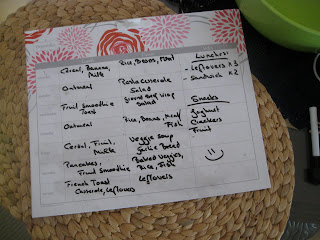 Cereal, Banana,
Milk
Rice, Beans,
Oatmeal
Pasta Casserole
Salad
Fruit Smoothie
Toast
Ground Beef
Salad
Oatmeal
Rice, Beans, Meat/
Fish
Cereal, Fruit,
Milk
Veggie Soup
Garlic Bread
Pancakes,
Fruit Smoothie
Baked Veggies,
Rice, Fish
French Toast
Casserole, Leftovers
Leftovers
Lunches:
- Leftovers x 3
- Sandwich x 2
Snacks
Yoghurt
Crackers
Fruit